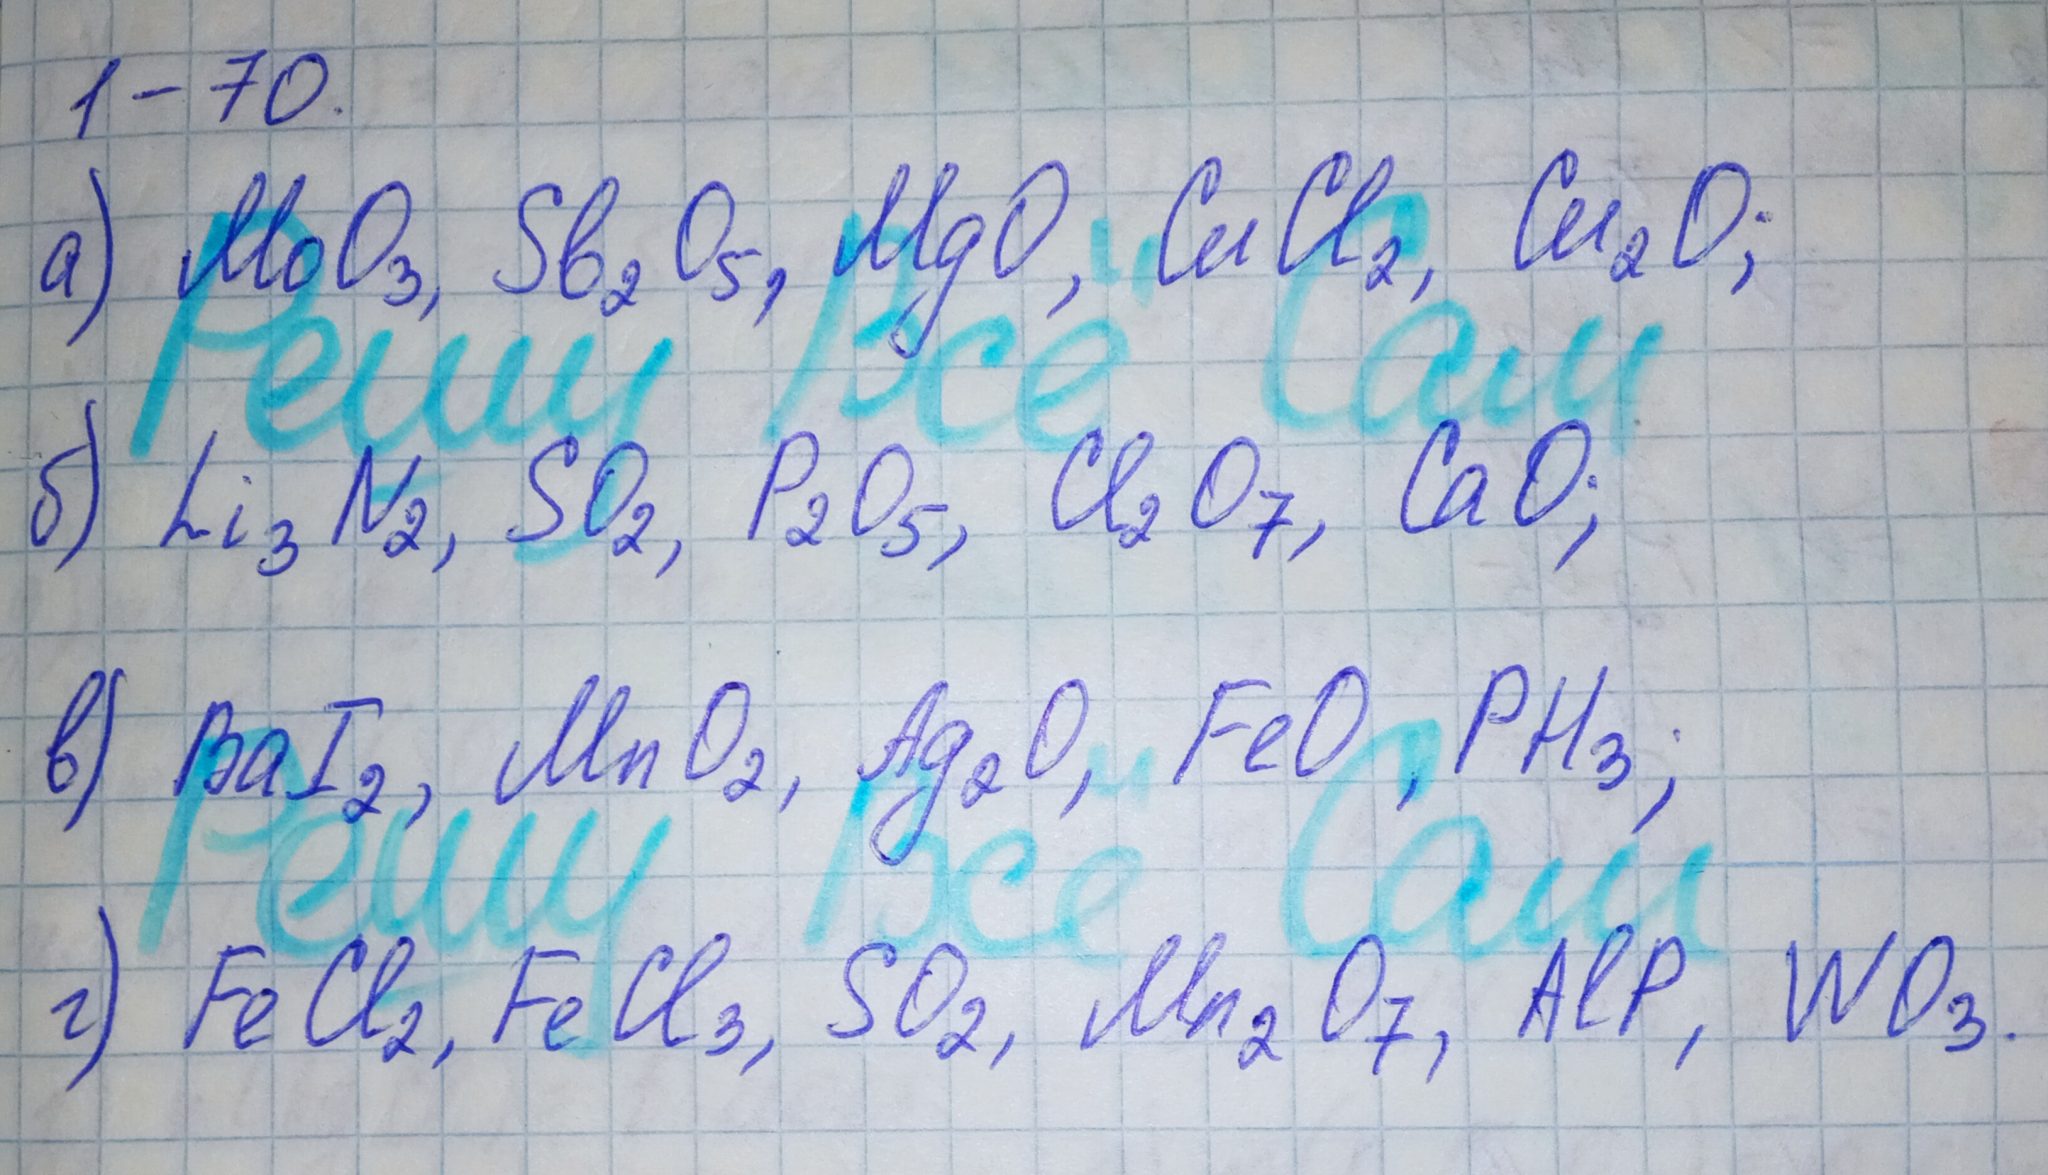 1-70.
а) MoO₃, Sb₂O₅, MgO, CuCl₂, Cu₂O;
Решу Всё Сам
б) Li₃N₂, SO₂, P₂O₅, Cl₂O₇, CaO;
в) BaI₂, MnO₂, Ag₂O, FeO, PH₃;
Решу Всё Сам
г) FeCl₂, FeCl₃, SO₂, Mn₂O₇, AlP, WO₃.